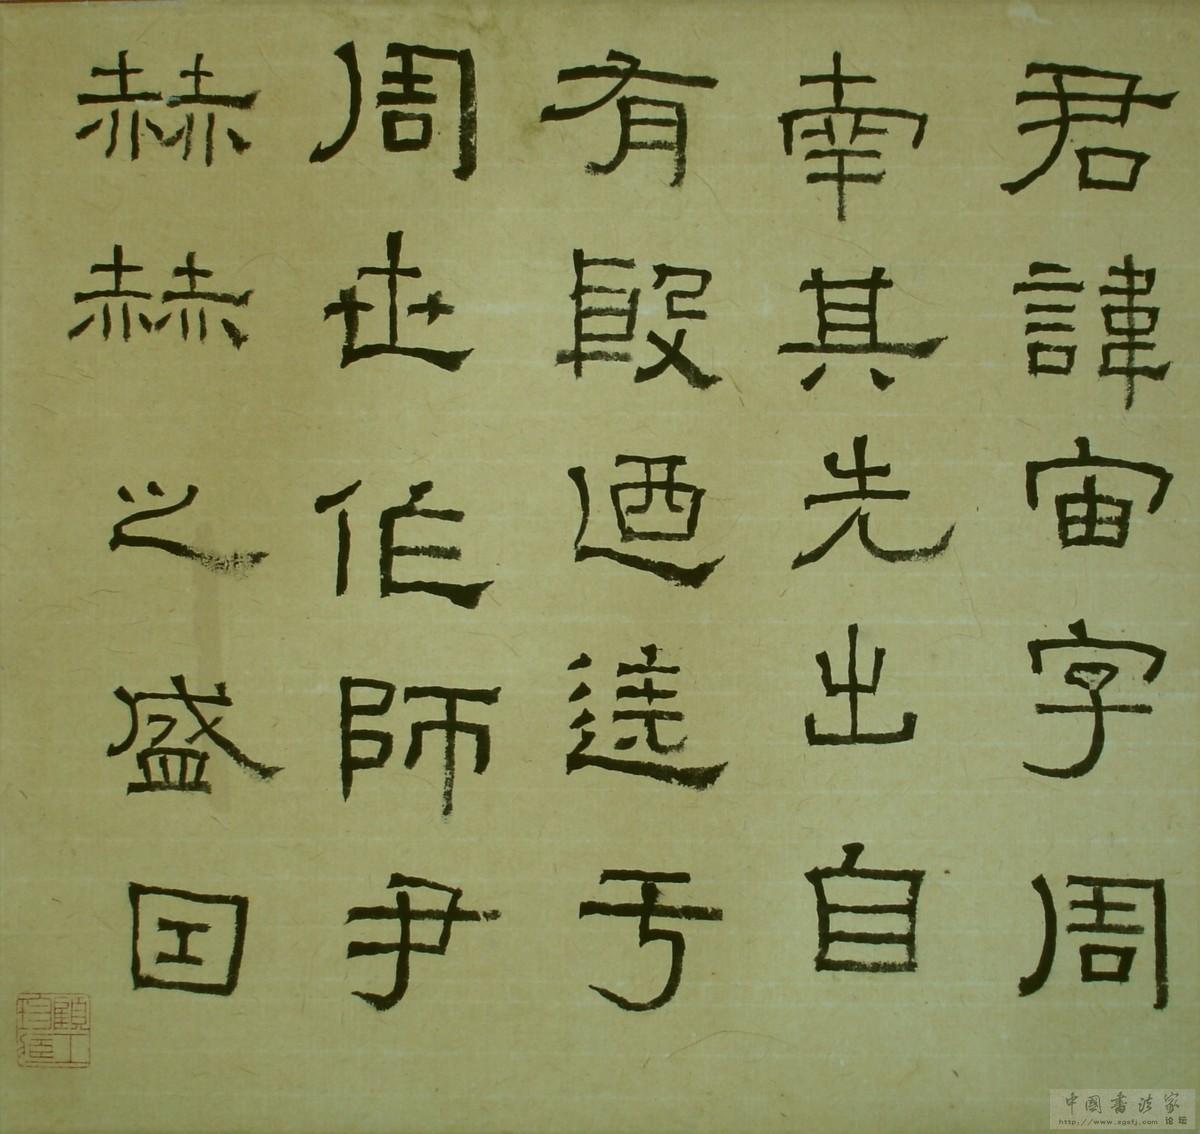 君諱宙字周
南其先出自
有殷迺遷于
周世作師尹
赫赫之盛因
顧工
中国書法家
http://www.zgsfj.com 论坛